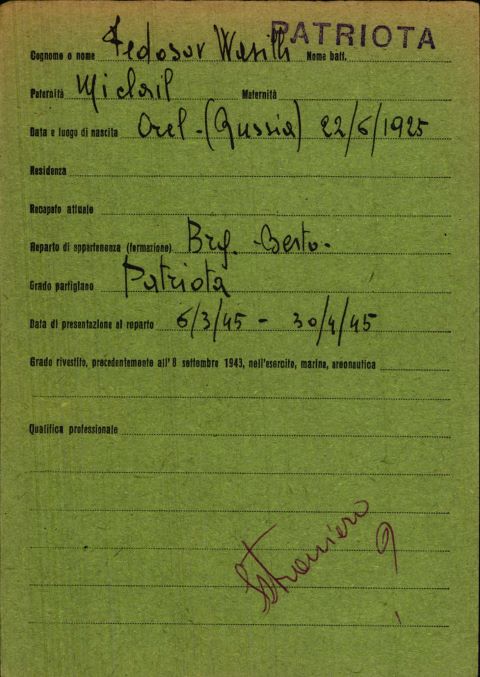 PATRIOTA
Cognome o nome Fedosov Wasili Nome batt.
Paternità Michail Maternità
Data e luogo di nascita Orel - (Russia) 22/6/1925
Residenza
Recapato attuale
Reparto di appartenenza (formazione) Brg. - Berto -
Grado partigiano Patriota
Data di presentazione al reparto 6/3/45 - 30/4/45
Grado rivestito, precedentemente all'8 settembre 1943, nell'esercito, marina, areonautica
Qualifica professionale
Straniero